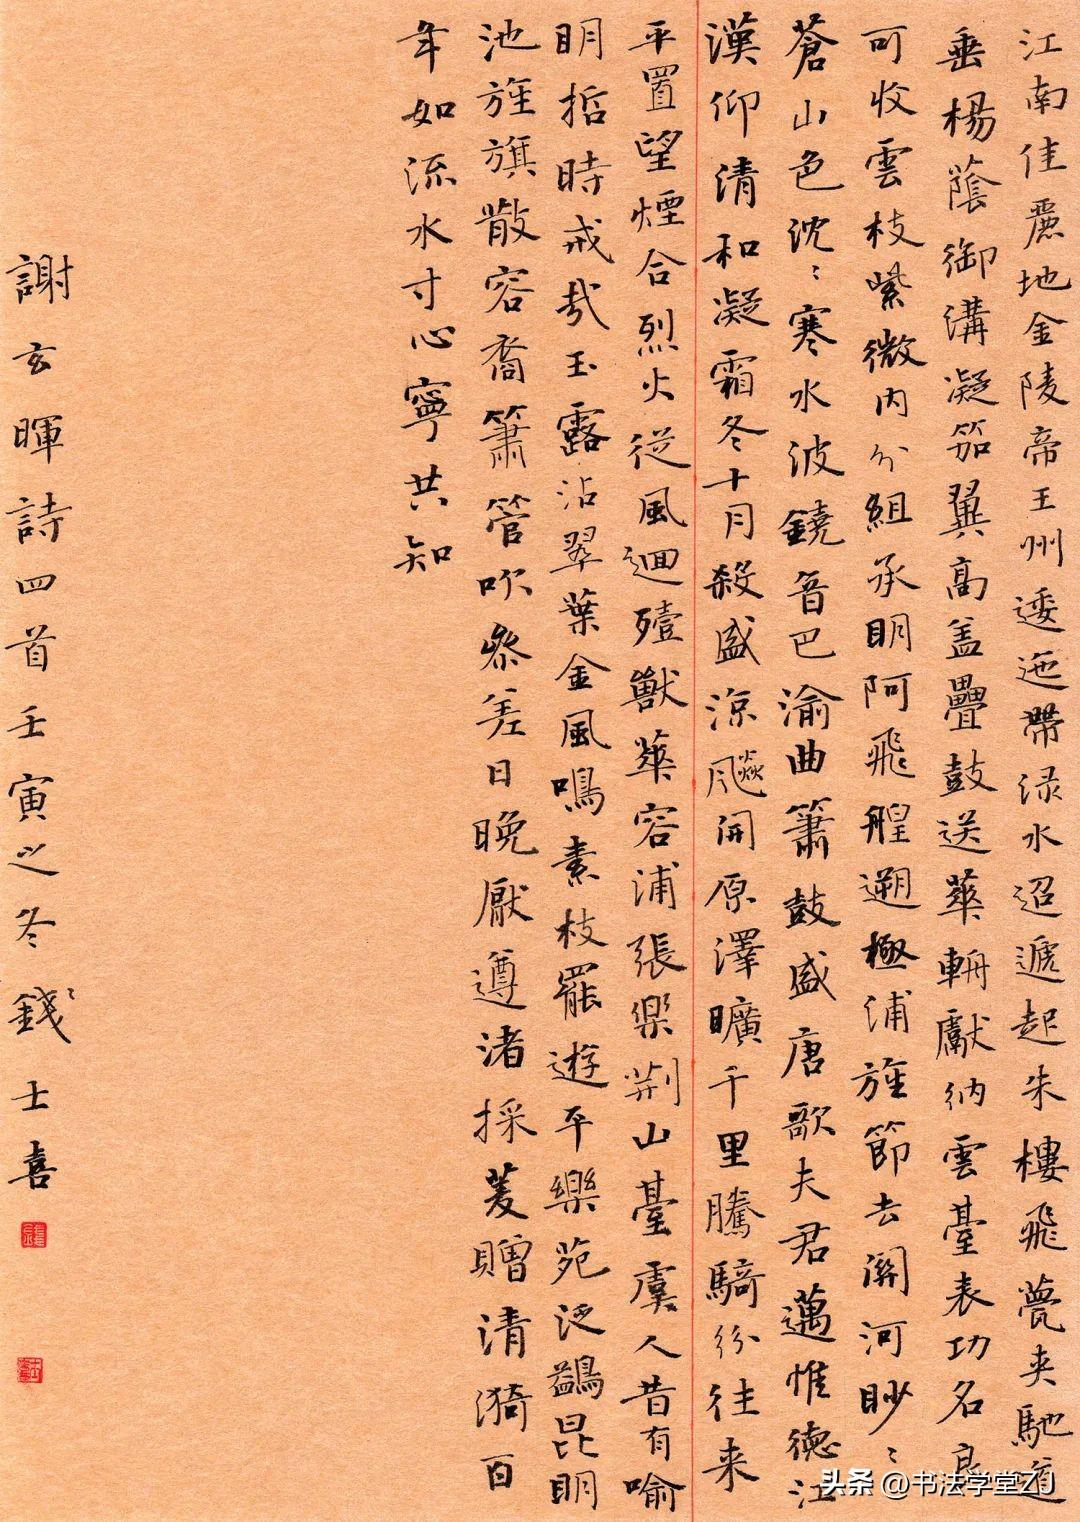 江南佳麗地金陵帝王州逶迤帶渌水迢遞起朱樓飛甍夾馳道
垂楊蔭御溝凝笳翼高盖疊鼓送華輈獻納雲臺表功名良
可收雲枝紫微内分組承明阿飛艎遡極浦旌節去関河眇〻
蒼山色沈〻寒水波鐃音巴渝曲簫鼓盛唐歌夫君邁惟德江
漢仰清和凝霜冬十月殺盛涼飈開原澤曠千里騰騎紛往来
平置望煙合烈火從風迴殪獸華容浦張樂荆山臺虞人昔有喻
明哲時戒哉玉露沾翠葉金風鳴素枝罷遊平樂苑泛鷁昆明
池旌旗散容裔簫管吹參差日晚厭遵渚採菱贈清漪百
年如流水寸心寧共知
謝玄暉詩四首壬寅之冬錢〻士喜
头条 @书法学堂ZJ